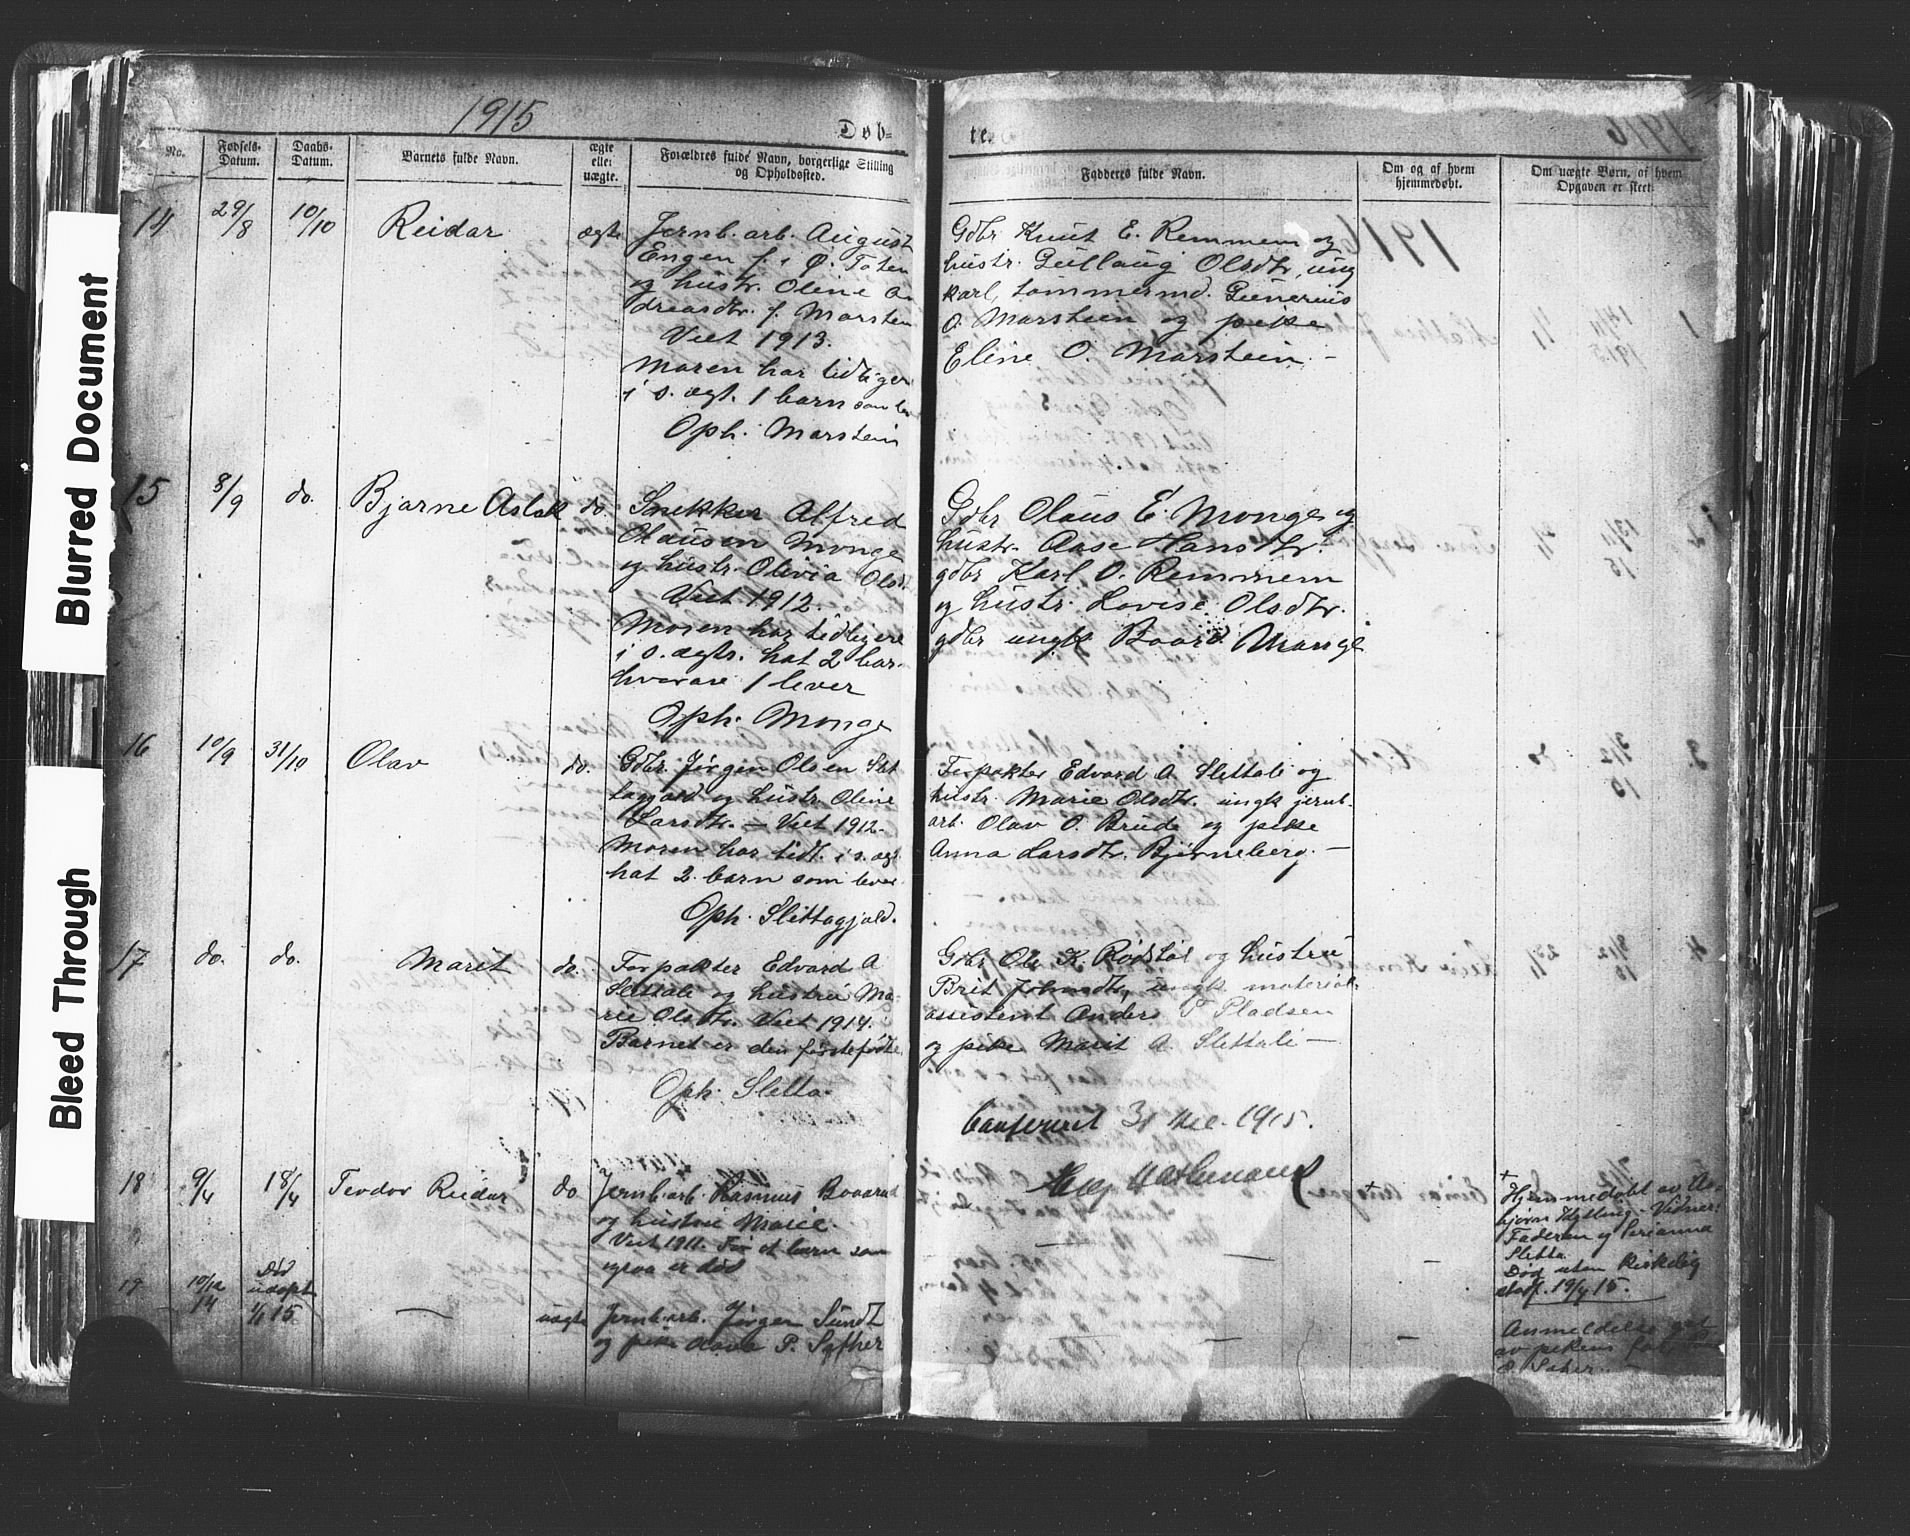 Blurred Document
Bleed Through
1915
Døb-
te.
1916
No.
Fødsels-
Datum.
Daabs-
Datum.
Barnets fulde Navn.
ægte
eller
uægte.
Forældres fulde Navn, borgerlige Stilling
og Opholdssted.
Fadderes fulde Navn.
Om og af hvem
hjemmedøbt.
Om uægte Børn, af hvem
Opgaven er skeet.
14
29/8
10/10
Reidar
ægte
Jernb. arb. August
Engen f. i Ø. Toten
og hustr. Oline An
dreasdtr. f. Marstein
Viet 1913.
Moren har tidliger
i s. ægt. 1 barn som lev
Oph. Marstein
Gdbr Knut E. Remmem og
hustr. Gullaug Olsdtr, ung
karl, tommermd. Gunerius
O. Marstein og pike
Eline O. Marstein. -
15
8/9
do.
Bjarne Aslak
do.
Snekker Alfred
Olausen Monge
og hustr. Olivia Olsdt
Viet 1912.
Moren har tidligere
i s. ægts. hat 2 bar.
hvorav 1 lever
Oph. Monge
Gdbr Olaus E. Monge og
hustr. Aase Hansdtr.
gdbr Karl O. Remmem
og hustr. Lovise Olsdtr.
gdbr ungk Baard Monge
16
10/9
31/10
Olav
do.
Gdbr. Jørgen Olsen Slet
tagjæld og hustr. Oline
Larsdtr. - Viet 1912.
Moren har tidl. i s. ægt.
hat 2 barn som lever
Oph. Slettagjæld.
Forpakter Edvard A. Slettali og
hustr. Marie Olsdtr. ungk jernb.
arb. Olav O. Brude og pike
Anna Larsdtr. Bjørneberg. -
17
do.
do.
Marit
do.
Forpakter Edvard A
Slettali og hustru Ma-
rie Olsdtr. Viet 1914.
Barnet er den førstefødte
Oph. Sletta.
Gdbr Ole K. Rødstøl og hustru
Brit Johnsdtr, ungk material-
assistent Anders T Pladsen
og pike Marit A. Slettali -
Confereret 31 dec. 1915.
18
9/4
18/4
Teodor Reidar
do
Jernb. arb. Rasmus
og hustru Marie.
Viet 1911. Før et barn som
ogsaa er død
+
+
Hjemmedøbt av As-
bjørn Kylling. Vidner:
Faderen og Perianna
Sletta.
Død uten kirkelig
stadf. 19/4 15.
19
10/12
14
Død
udøpt
1/1 15
-
uægte
Jernb. arb. Jørgen Sundt
og pike P. Sæther
-
-
Anmeldelse gat
av pikens far,